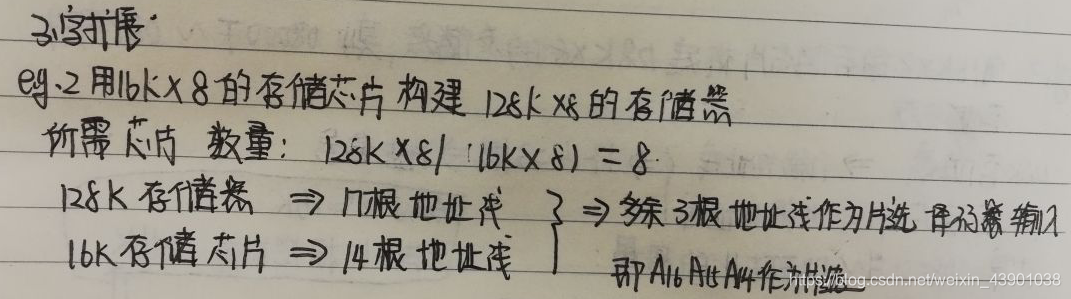 3.字扩展.
eg.2 用16K×8的存储芯片构建 128K×8的存储器
所需芯片 数量: 128K×8/(16K×8)=8.
128K 存储器 ⇒ 17根地址线 } ⇒ 多余3根地址线作为片选 译码器输入
16K存储芯片 ⇒ 14根地址线 即A16 A15 A14作为片选
https://blog.csdn.net/weixin_43901038